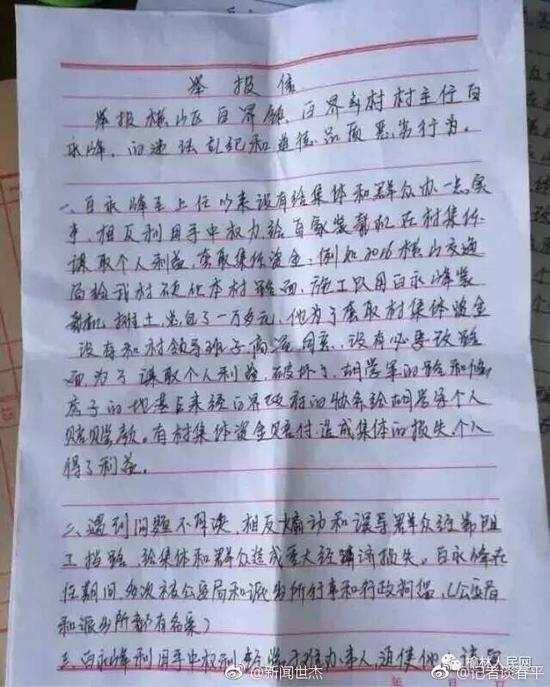 举报信
举报横山区白界镇、白界乡村村主任白
永峰,的违法乱纪和道德品质恶劣行为。
一、白永峰至上任以来没有给集体和群众办一点实
事,相反利用手中权力给自家装载机在村集体
谋取个人利益,套取集体资金:例如2016横山交通
局给我村硬化本村路面,施工只用白永峰装
载机推土,总包了一万多元,他为了套取村集体资金
没有和村领导班子商议同意,没有必要改路
面,为了谋取个人利益,破坏了胡学军的路和
房子的地基后来经白界政府的协条给胡学军个人
赔款。有村集体资金赔付,造成集体的损失,个人
得了利益。
二、遇到问题不解决,相反煽动和误导群众经常阻
工挡路,给集体和群众造成重大经济损失。白永峰在
任期间,多次被公安局和派出所行事和行政拘留,(公安局
和派出所都有名案)
三、白永峰利用手中权利
年 月 日
榆林人民网
@新闻世杰
@记者谈春平